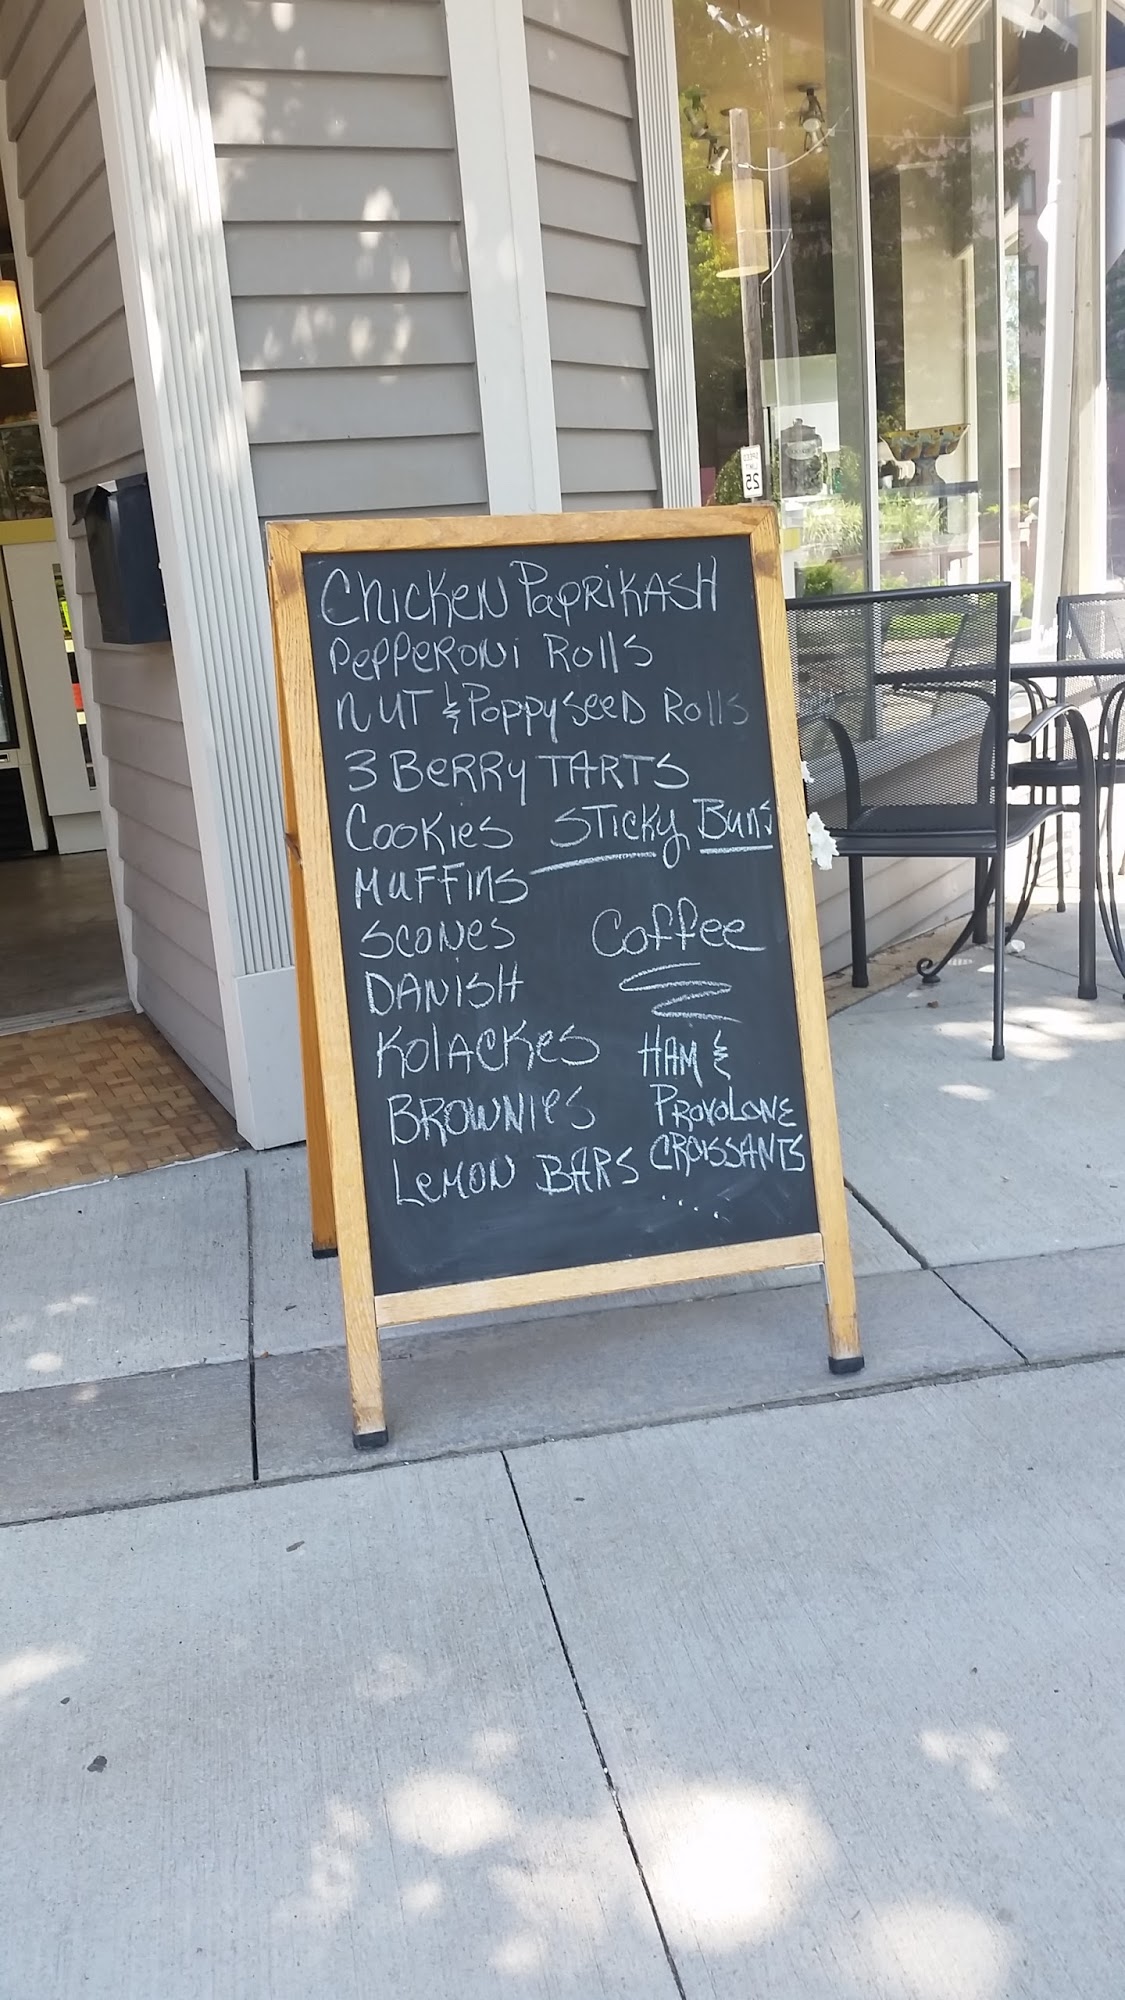 Chicken Paprikash
Pepperoni Rolls
Nut & Poppyseed Rolls
3 Berry Tarts
Cookies
Muffins
Scones
Danish
Kolackes
Brownies
Lemon Bars
Sticky Buns
Coffee
Ham &
Provolone
Croissants
.....
SPEED
LIMIT
25